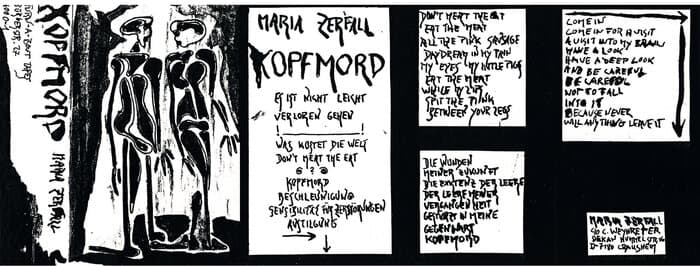 KOPFMORD
MARIA ZERFALL
MARIA ZERFALL
KOPFMORD
ES IST NICHT LEICHT
VERLOREN GEHEN
WAS KOSTET DIE WELT
DON'T MEAT THE EAT
@ ? @
KOPFMORD
BESCHLEUNIGUNG
SENSIBILITÄT FÜR ZERSTÖRUNGEN
AUSTILGUNG
DON'T MEAT THE EAT
EAT THE MEAT
ALL THE PINK SAUSAGE
DAYDREAM IN MY TAN
MY EYES MY LITTLE PIGS
EAT THE MEAT
WHILE MY LIPS
SPIT THE PINK
BETWEEN YOUR LEGS
DIE WUNDEN
MEINER ZUKUNFT
DIE EXISTENZ DER LEERE
DER LEERE MEINER
VERGANGENHEIT
GESTÜRZT IN MEINE
GEGENWART
KOPFMORD
COME IN
COME IN FOR A VISIT
A VISIT INTO MY BRAIN
HAVE A LOOK
HAVE A DEEP LOOK
AND BE CAREFUL
BE CAREFUL
NOT TO FALL
INTO IT
BECAUSE NEVER
WILL ANYTHING LEAVE IT
MARIA ZERFALL
C/O C. WEYHRETER
DEKAN HUMMEL STR
D-7180 CRAILSHEIM